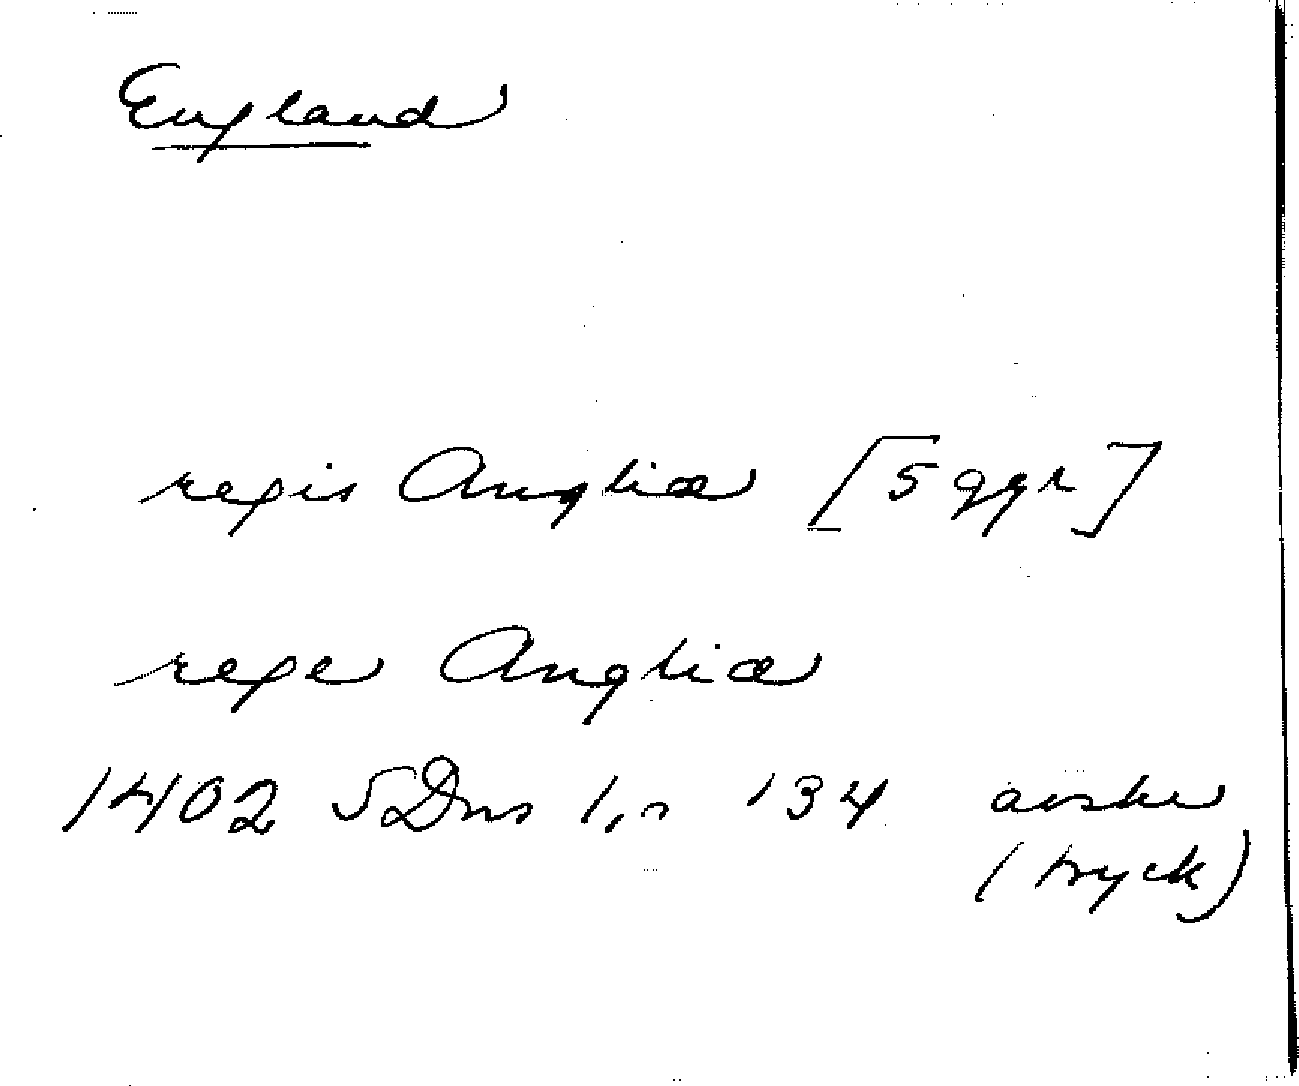 England
regis Angliæ [5 ggr]
rege Angliæ
1402 SDns 1, n 134 avskr
(tryck)